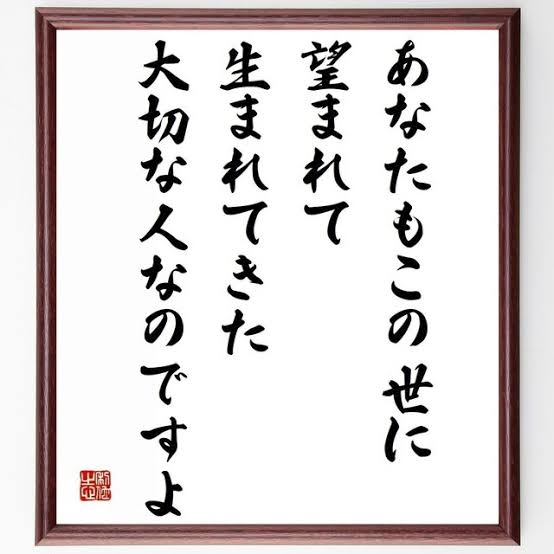 あなたもこの世に
望まれて
生まれてきた
大切な人なのですよ